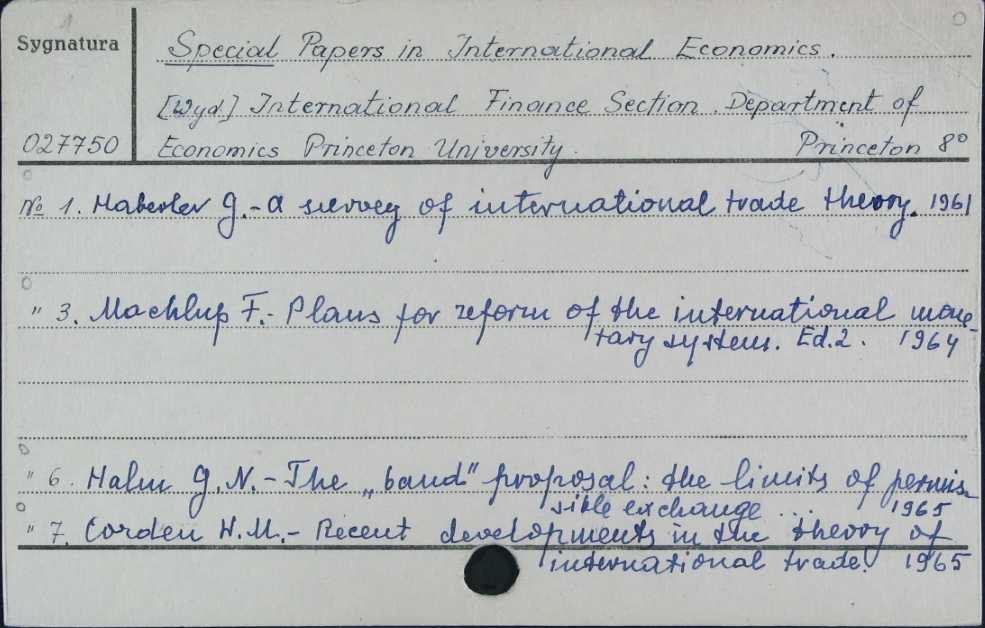 1
Sygnatura
Special Papers in International Economics.
[Wyd.] International Finance Section. Department of
027750
Economics Princeton University. Princeton 8°
№ 1. Haberler G.- a survey of international trade theory. 1961
" 3. Machlup F.- Plans for reform of the international mone-
tary system. Ed.2. 1964
" 6. Halm G.N.- The „band" proposal: the limits of permis-
sible exchange ... 1965
" 7. Corden W.M.- Recent developments in the theory of
international trade. 1965